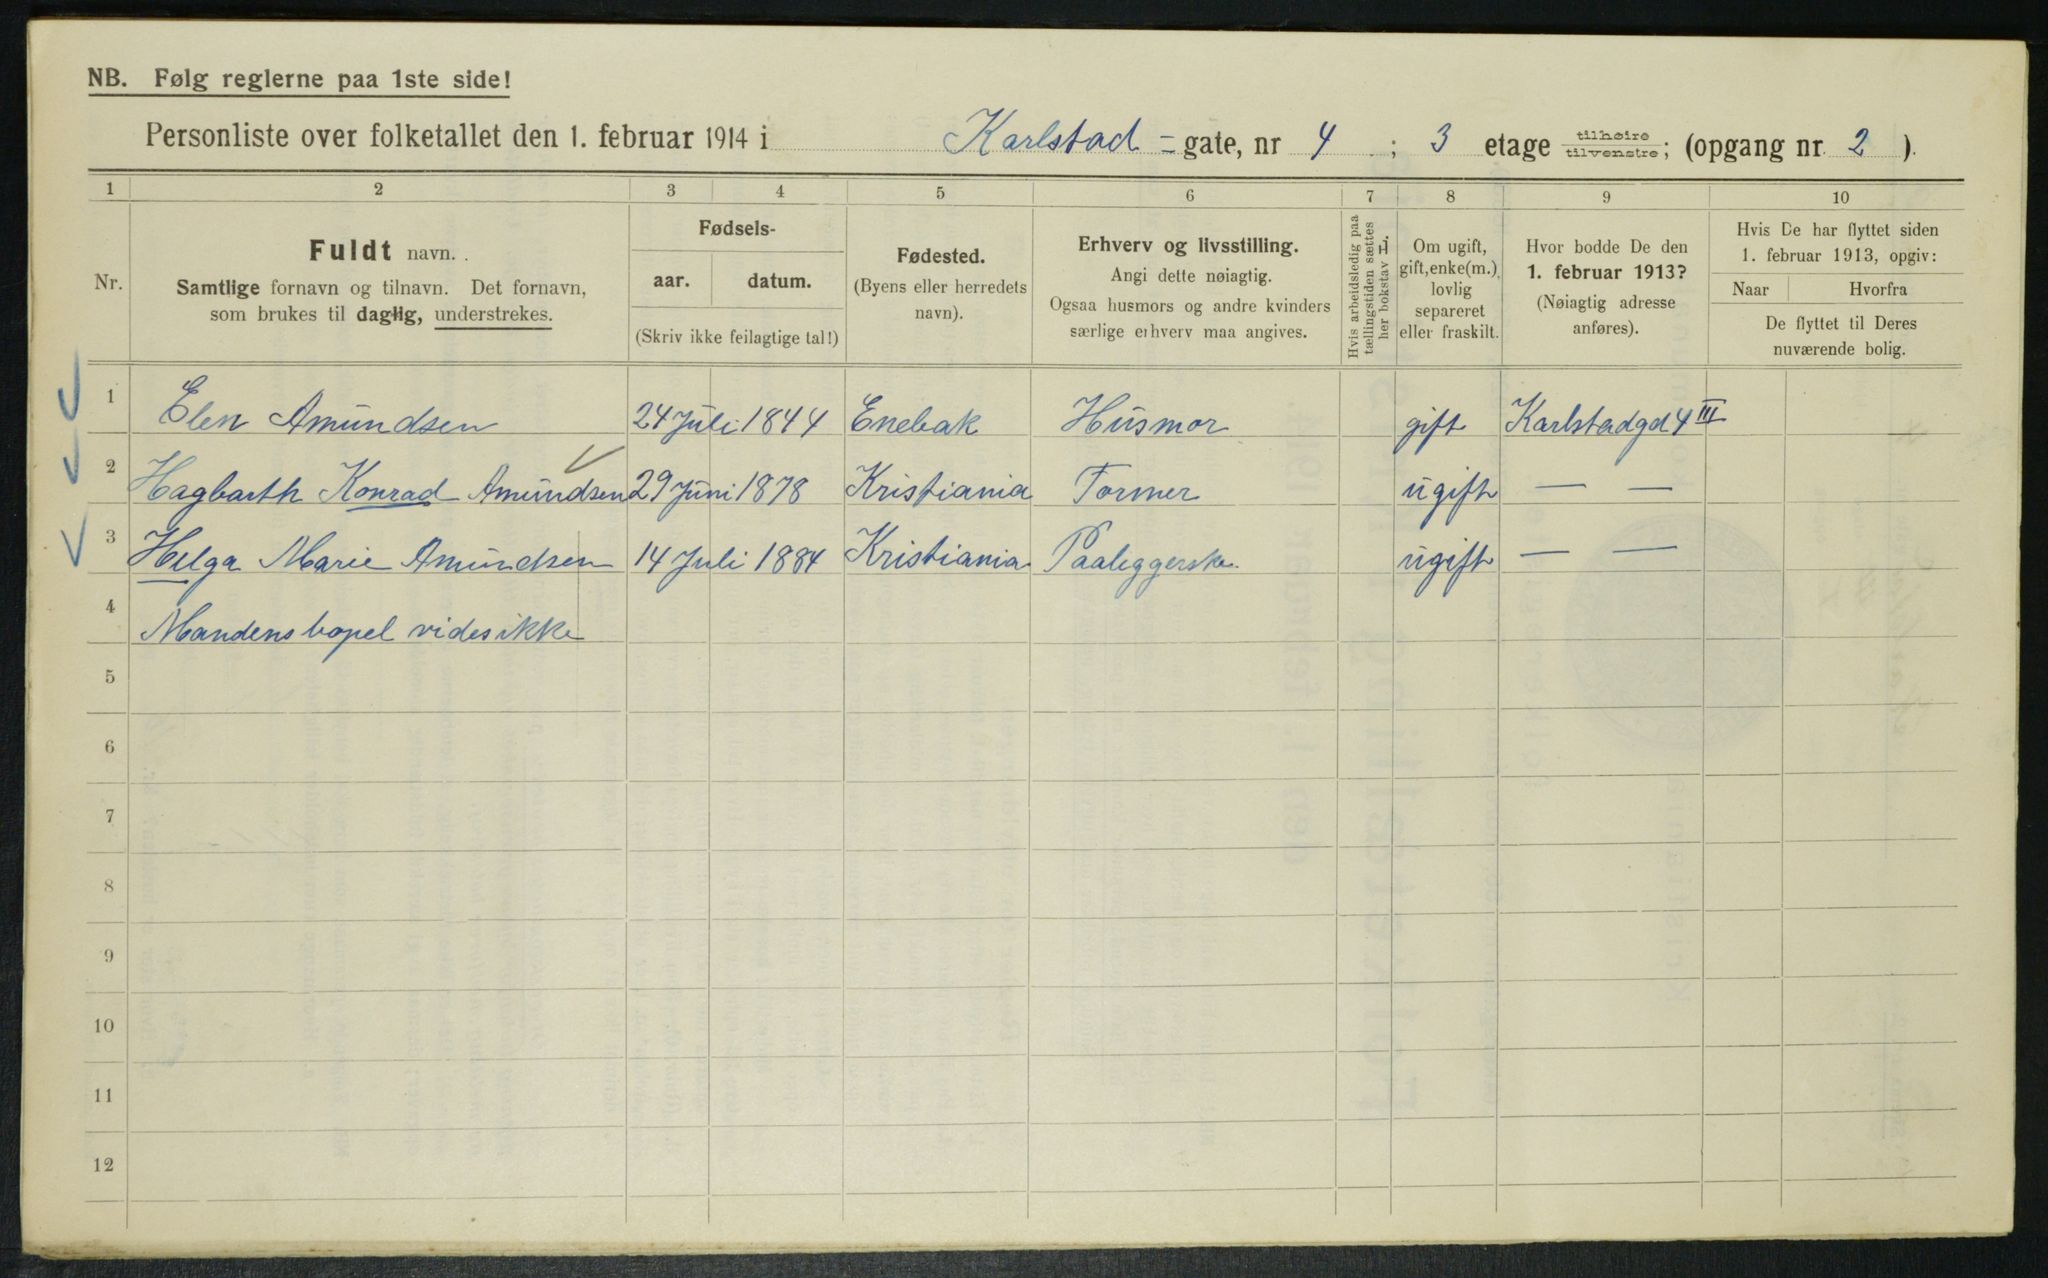 NB. Følg reglerne paa 1ste side!
Personliste over folketallet den 1. februar 1914 i Karlstad = gate, nr 4 ; 3 etage tilhøire tilvenstre; (opgang nr. 2 ).
1 2 3 4 5 6 7 8 9 10
Nr.
Fuldt navn.
Samtlige fornavn og tilnavn. Det fornavn,
som brukes til daglig, understrekes.
Fødsels-
aar. datum.
(Skriv ikke feilagtige tal!)
Fødested.
(Byens eller herredets
navn).
Erhverv og livsstilling.
Angi dette nøiagtig.
Ogsaa husmors og andre kvinders
særlige erhverv maa angives.
Hvis arbeidsledig paa
tællingstiden sættes
her bokstav L.
Om ugift,
gift, enke(m.),
lovlig
separeret
eller fraskilt.
Hvor bodde De den
1. februar 1913?
(Nøiagtig adresse
anføres).
Hvis De har flyttet siden
1. februar 1913, opgiv:
Naar Hvorfra
De flyttet til Deres
nuværende bolig.
1 Elen Amundsen 24 Juli 1844 Enebak Husmor gift Karlstadgd 4 III
2 Hagbarth Konrad Amundsen 29 Juni 1878 Kristiania Former ugift — —
3 Helga Marie Amundsen 14 Juli 1884 Kristiania Paaleggerske ugift — —
4 Mandens bopel vides ikke
5
6
7
8
9
10
11
12